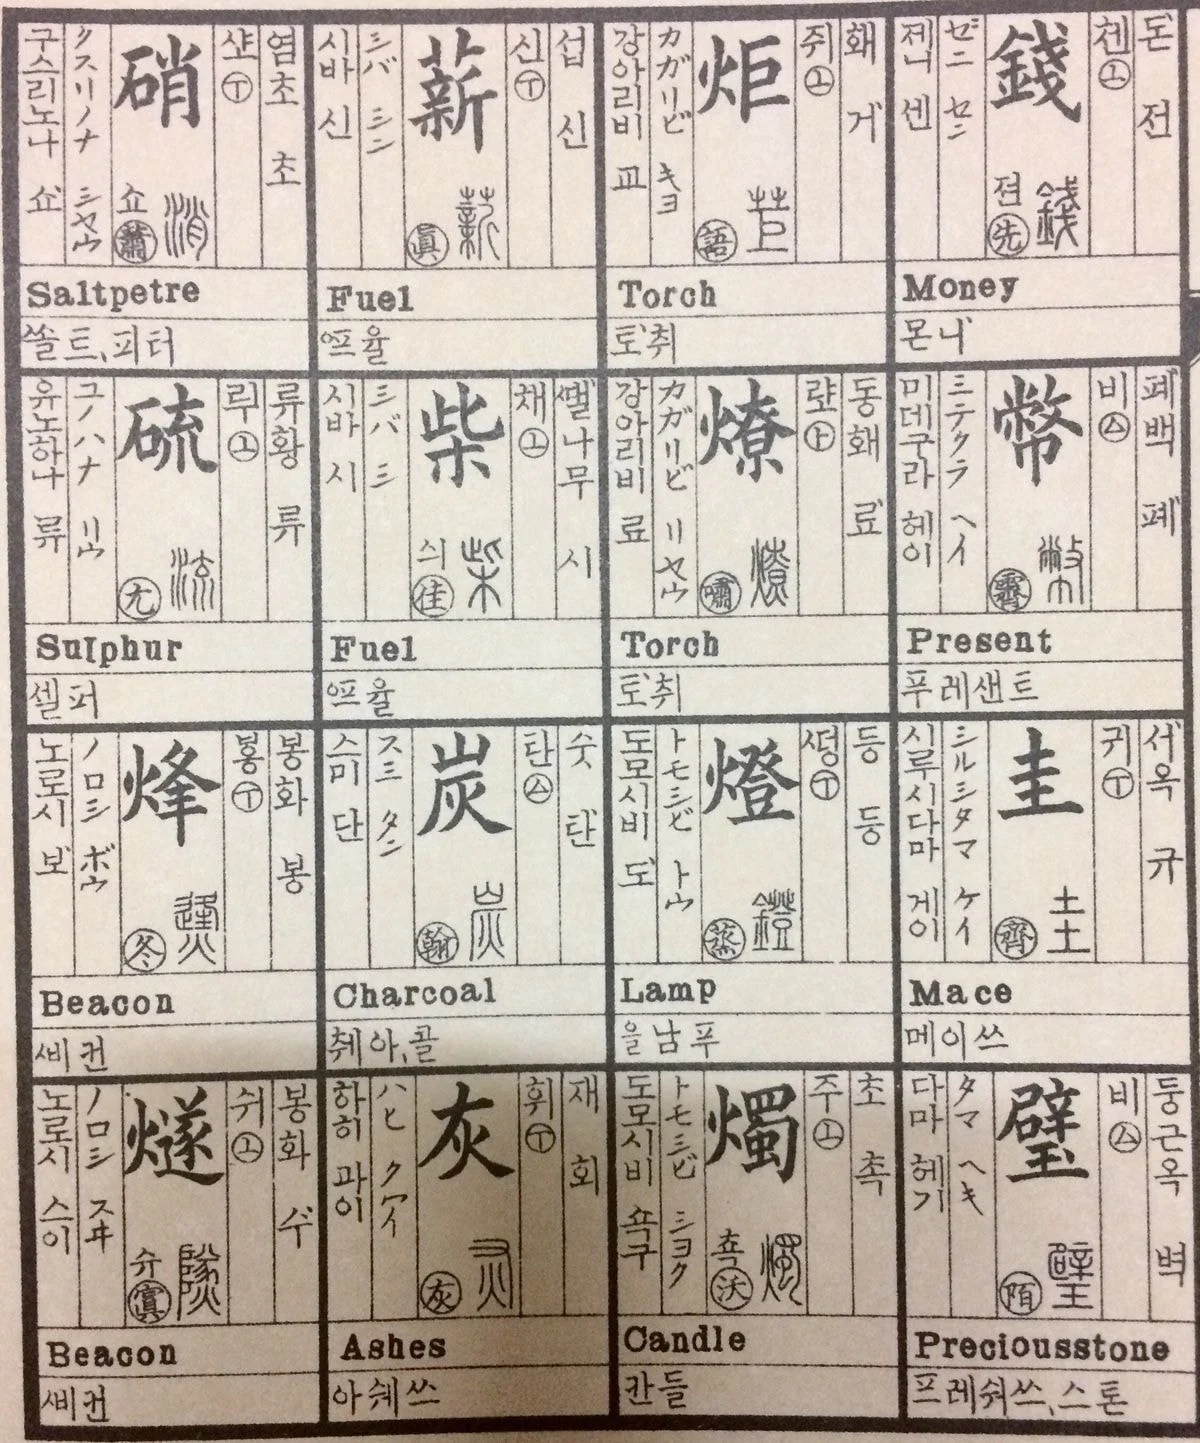 돈 전
쳰 ㊤
錢
젼 錢
先
ゼニ セン
제니 센
Money
몬니
폐백 폐
비 ㊁
幣
幣
霽
ミテクラ ヘイ
미데구라 헤이
Present
푸레샌트
서옥 규
귀 ㅜ
圭
圭
齊
シルシタマ ケイ
시루시다마 게이
Mace
메이쓰
둥근옥 벽
비
璧
璧
陌
タマ ヘキ
다마 헤기
Preciousstone
프레쉬쓰、스톤
홰 거
쥐
炬
苣
語
カガリビ キヨ
강아리비 교
Torch
토취
동홰 료
랴
燎
燎
嘯
カガリビ リヤウ
강아리비 료
Torch
토취
등 등
燈
鐙
蒸
トモシビ トウ
도모시비 도
Lamp
을남푸
초 촉
주
燭
쵹 燭
沃
トモシビ シヨク
도모시비 쇽구
Candle
칸들
섭 신
신
薪
薪
眞
シバ シン
시바 신
Fuel
ᅋᅳ율
땔나무 시
채
柴
싀 柴
佳
シバ シ
시바 시
Fuel
ᅋᅳ율
숫 탄
탄
炭
炭
翰
スミ タン
스미 단
Charcoal
촤아、콜
재 회
휘
灰
灰
灰
ハヒ クワイ
하히 과이
Ashes
아쉐쓰
염초 초
샤
硝
쇼 消
蕭
クスリノナ シヤウ
구스리노나 쇼
Saltpetre
쏠트、피터
류황 류
루
硫
流
尤
ユノハナ リウ
유노하나 류
Sulphur
셀퍼
봉화 봉
봉
烽
㷭
冬
ノロシ ボウ
노로시 보
Beacon
ᄲᅵ컨
봉화 수
쉬
燧
슈 䥙
寘
ノロシ スヰ
노로시 스이
Beacon
ᄲᅵ컨